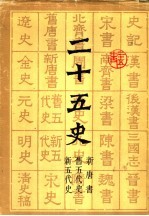 二十五史
新唐書
舊五代史
新五代史
史記 漢書 後漢書 三國志
宋書 南齊書 梁書 陳書 魏書
北齊書
舊唐書 新唐書 舊五代史 新五代史 宋史
遼史 金史 元史 明史 清史稿